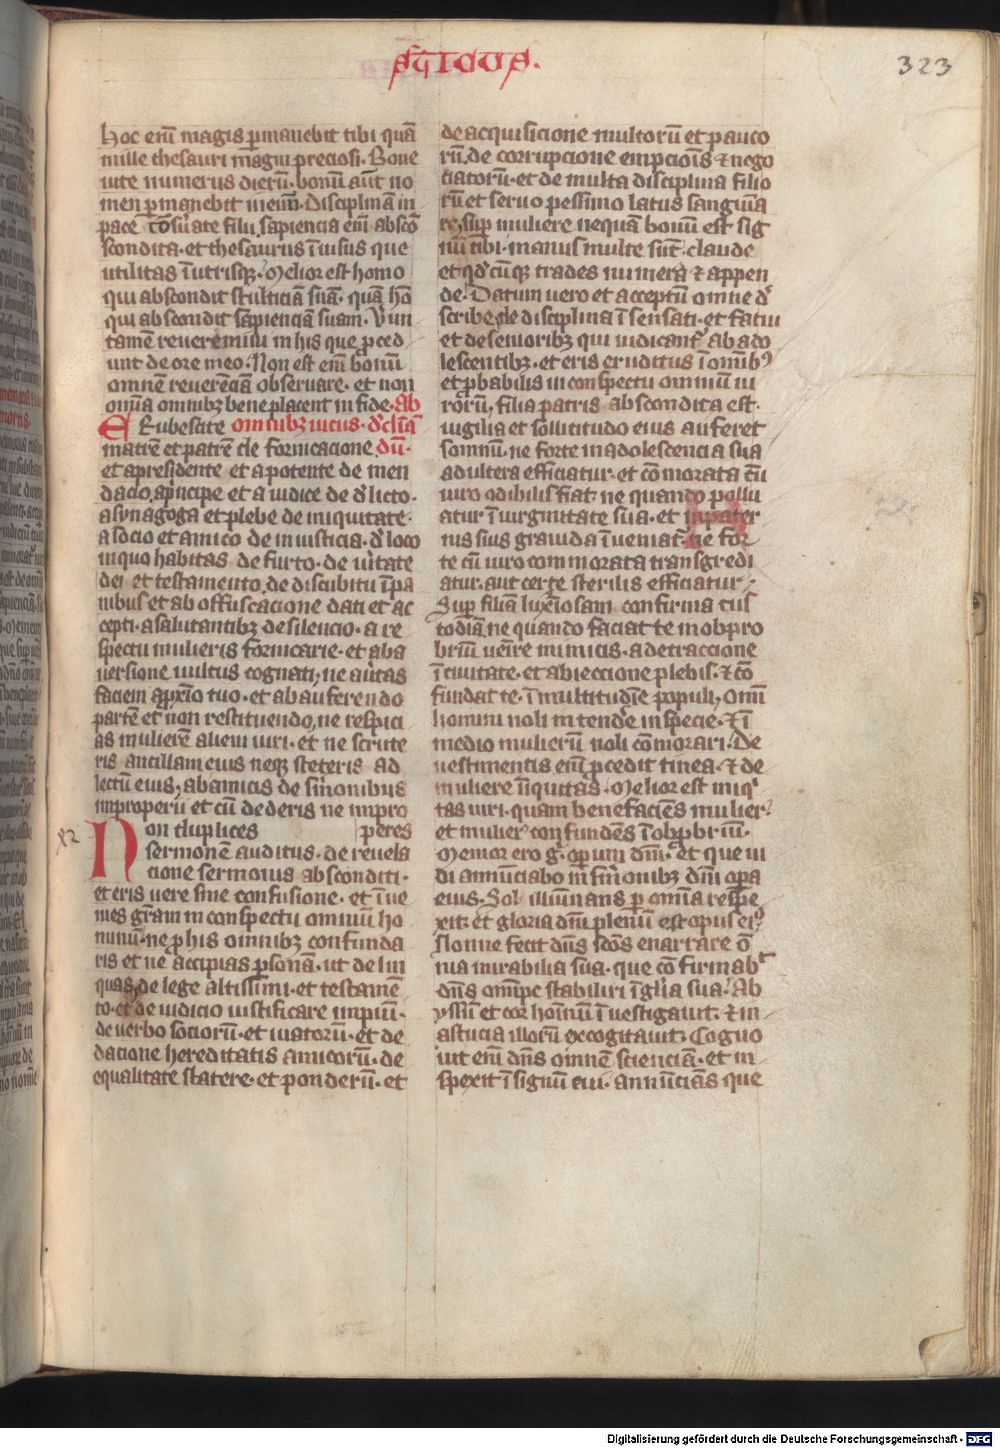 sticus.
323
hoc enī magis ꝑmanebit tibi quā
mille thesauri magni preciosi. Bone
uite numerus dierū. bonū aūt no
men ꝑmanebit ineuū. Disciplinā in
pace cōs̄uate filii, sapiencia enī abscō
scondita. et thesaurus īuisus que
utilitas ī utrisqꝫ. Melior est homo
qui abscondit stulticiā suā. quā hō
qui abscondit sapienciā suam. Verun
tamē reueremini in his que ꝓced
unt de ore meo. Non est enī bonū
omnē reuerēciā obseruare. et non
om̄ia omnibꝫ bene placent in fide. Ab
ERubescite omnibꝫ uicus. dʼcliā
matrē et patrē de fornicacione. dū.
et a presidente et a potente de men
dacio, a p̄ncipe et a iudice de dʼlicto.
a synagoga et plebe de iniquitate.
a socio et amico de iniusticia. dʼ loco
in quo habitas de furto. de ūitate
dei et testamento, de discubitu ī pa
nibus et ab offuscacione dati et ac
cepti. a salutantibꝫ de silencio. a re
spectu mulieris fornicarie. et aba
uersione uultus cognati, ne aūtas
faciem a ꝓxīo tuo. et ab auferendo
partē et non restituendo, ne respici
as mulierē alieni uiri. et ne scrute
ris ancillam eius neqꝫ steteris ad
lectū eius, ab amicis de s̄monibus
improperii et cū dederis ne impro
Non duplices peres
x2
sermonē auditus. de reuela
cione sermonis absconditi.
et eris uere sine confusione. et īue
nies grām in conspectu omniū ho
minū. ne ꝓ his omnibꝫ confunda
ris et ne accipias ꝑsonā. ut delin
quas, de lege altissimi. et testamē
to. et de iudicio iustificare impiū.
de uerbo sociorū. et uiatorū. et de
dacione hereditatis amicorū. de
equalitate statere. et ponderū. et
de acquisicione multorū et pauco
rū, de corrupcione empciōis ⁊ nego
ciatorū. et de multa disciplina filio
rū et seruo pessimo latus sanguīa
re, suꝑ muliere nequā bonū est sig
nū tibi. manus multe sūt. claude
et qd̓cūqꝫ trades numera ⁊ appen
de. Datum uero et acceptū omne dʼ
scribe, de disciplina ī sensati. et fatui
et de senioribꝫ qui iudicantʼ ab ado
lescentibꝫ. et eris eruditus ī omībꝯ
et ꝓbabilis in conspectu omniū ui
rorū, filia patris abscondita est.
uigilia et sollicitudo eius auferet
somnū. ne forte in adolescencia sua
adultera efficiatur. et cōmorata cū
uiro odibilis fiat. ne quando pollu
atur ī uirginitate sua. et in pater
nis suis grauida īueniatʼ. ne for
te cū uiro commorata transgredi
atur. aut certe sterilis efficiatur.
Suꝑ filiā luxuiosam confirma cus
todiā, ne quando faciat te in obpro
briū uenire inimicis. a detractione
ī ciuitate. et abieccione plebis. ⁊ cō
fundat te. ī multitudīe populi, Omī
homini noli intendʼe in specie. ⁊ ī
medio mulierū noli cōmorari. De
uestimentis enī ꝓcedit tinea. ⁊ de
muliere īiquitas. Melior est iniqʼ
tas uiri. quam benefaciēs mulierʼ.
et mulierʼ confundēs ī obꝓbriū.
Memor ero gʼ. oꝑum dn̄i. et que ui
di annūciabo in s̄monibꝫ dn̄i oꝑa
eius. Sol illūinans ꝑ om̄ia respe
xit. et gloria dn̄i plenū est opus eiꝯ
Nonne fecit dn̄s scōs enarrare ō
nia mirabilia sua. que cōfirmabᵗ
dn̄s om̄pc̄ stabiliri ī gl̄ia sua. Ab
yssū et cor hoīnū īuestigauit. ⁊ in
astucia illorū excogitauit, Cogno
uit enī dn̄s omnē scienciā. et in
spexit ī signū eui. annūciās que
Digitalisierung gefördert durch die Deutsche Forschungsgemeinschaft - DFG